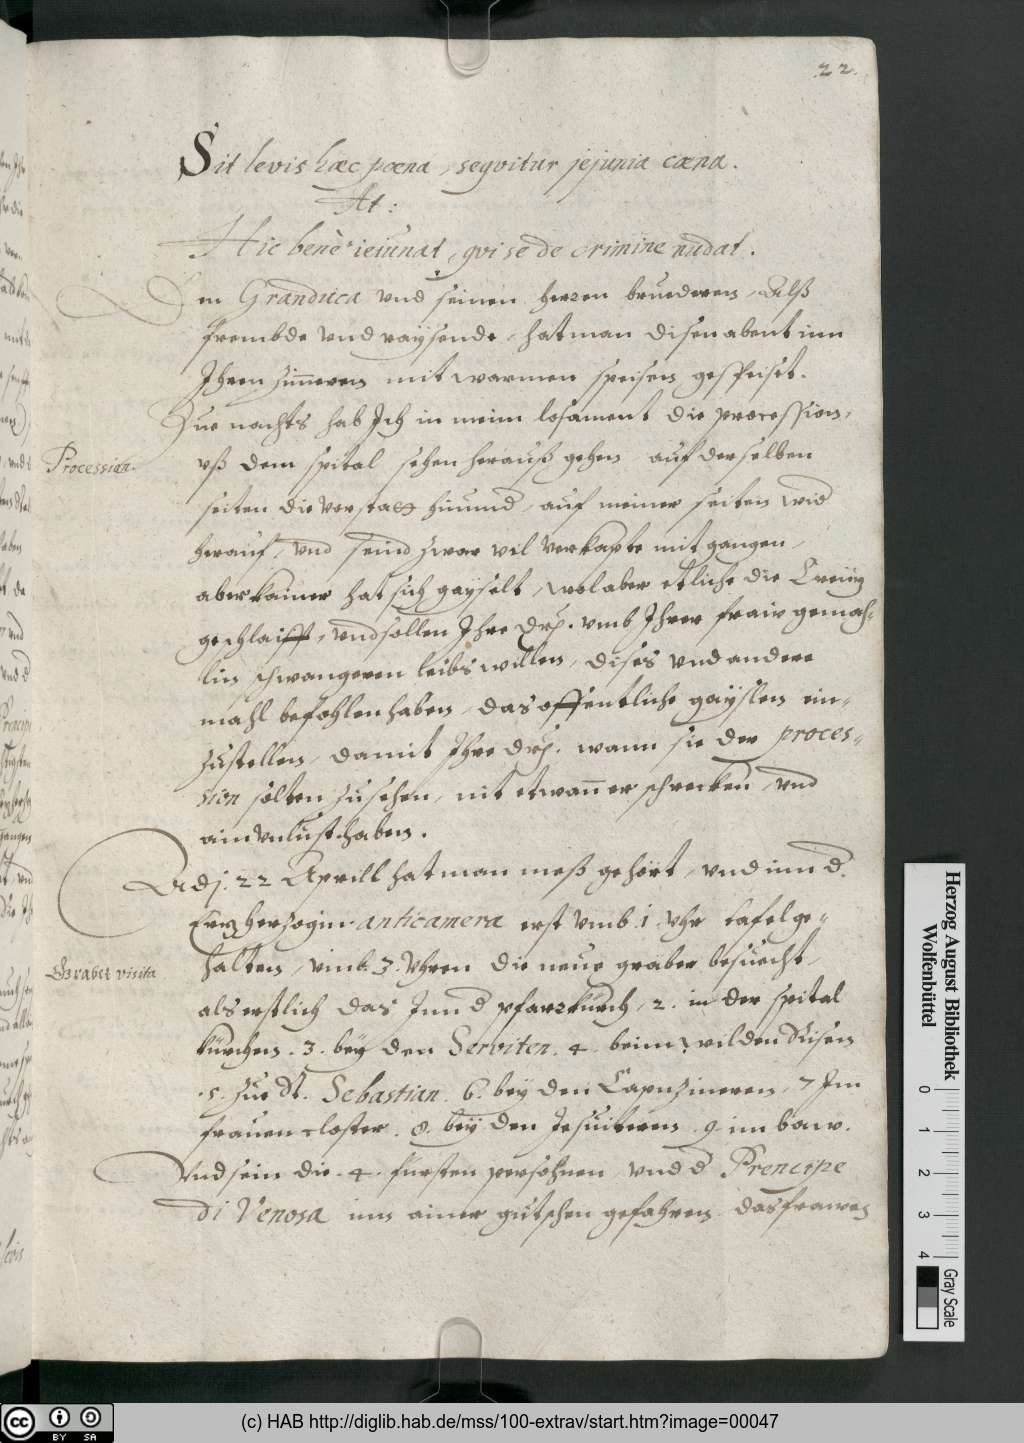 22.
Sit levis hæc pœna, seqvitur jejunia cœna.
At:
Hic benè ieiunat, qvi se de crimine nudat.
Dem Granduca vnd seinen herren bruederen, Alß
frembde vnd raysende, hat man disen abent inn
Ihren zim̄eren mit warmen speisen gespeiset.
Zue nachts hab Ich in meim losament die procession,
Procession.
vß dem spital sehen herauß gehen auf der selben
seiten die vorstatt hinumd, auf meiner seiten wid
herauf, vnd seind zwar vil verkapte mit gangen,
aber kainer hat sich gayselt, wol aber etliche die Creüz
geschlaifft, vnd sollen Ihre Drl. vmb Ihrer fraw gemah-
lin schwangeren leibs willen, dises vnd andere
mahl befohlen haben, das offentliche gayslen ein-
zustellen, damit Ihre Drl. wann sie der proces-
sion solten zusehen, nit etwan̄ erschrecken, vnd
ain vnlust haben.
Adj. 22 Aprill hat man meß gehört, vnd inn d.
Erzherzogin anticamera erst vmb 1 vhr tafel ge-
halten, vmb 3. Vhren die neue gräber besuecht,
Gräber visita
als erstlich das Inn d pfarrkürch, 2. in der spital
kürchen. 3. bey den Serviten. 4. beim wilden
5. zue St. Sebastian. 6. bey den Capuzineren. 7 Im
frauen closter. 8. bey den Jesuiteren. 9 im baw.
Vnd sein die 4. fürsten persohnen vnd d Prencipe
di Venosa inn ainer gutschen gefahren das frawen
Herzog August Bibliothek
Wolfenbüttel
0 1 2 3 4
Gray Scale
(c) HAB http://diglib.hab.de/mss/100-extrav/start.htm?image=00047
cc BY SA